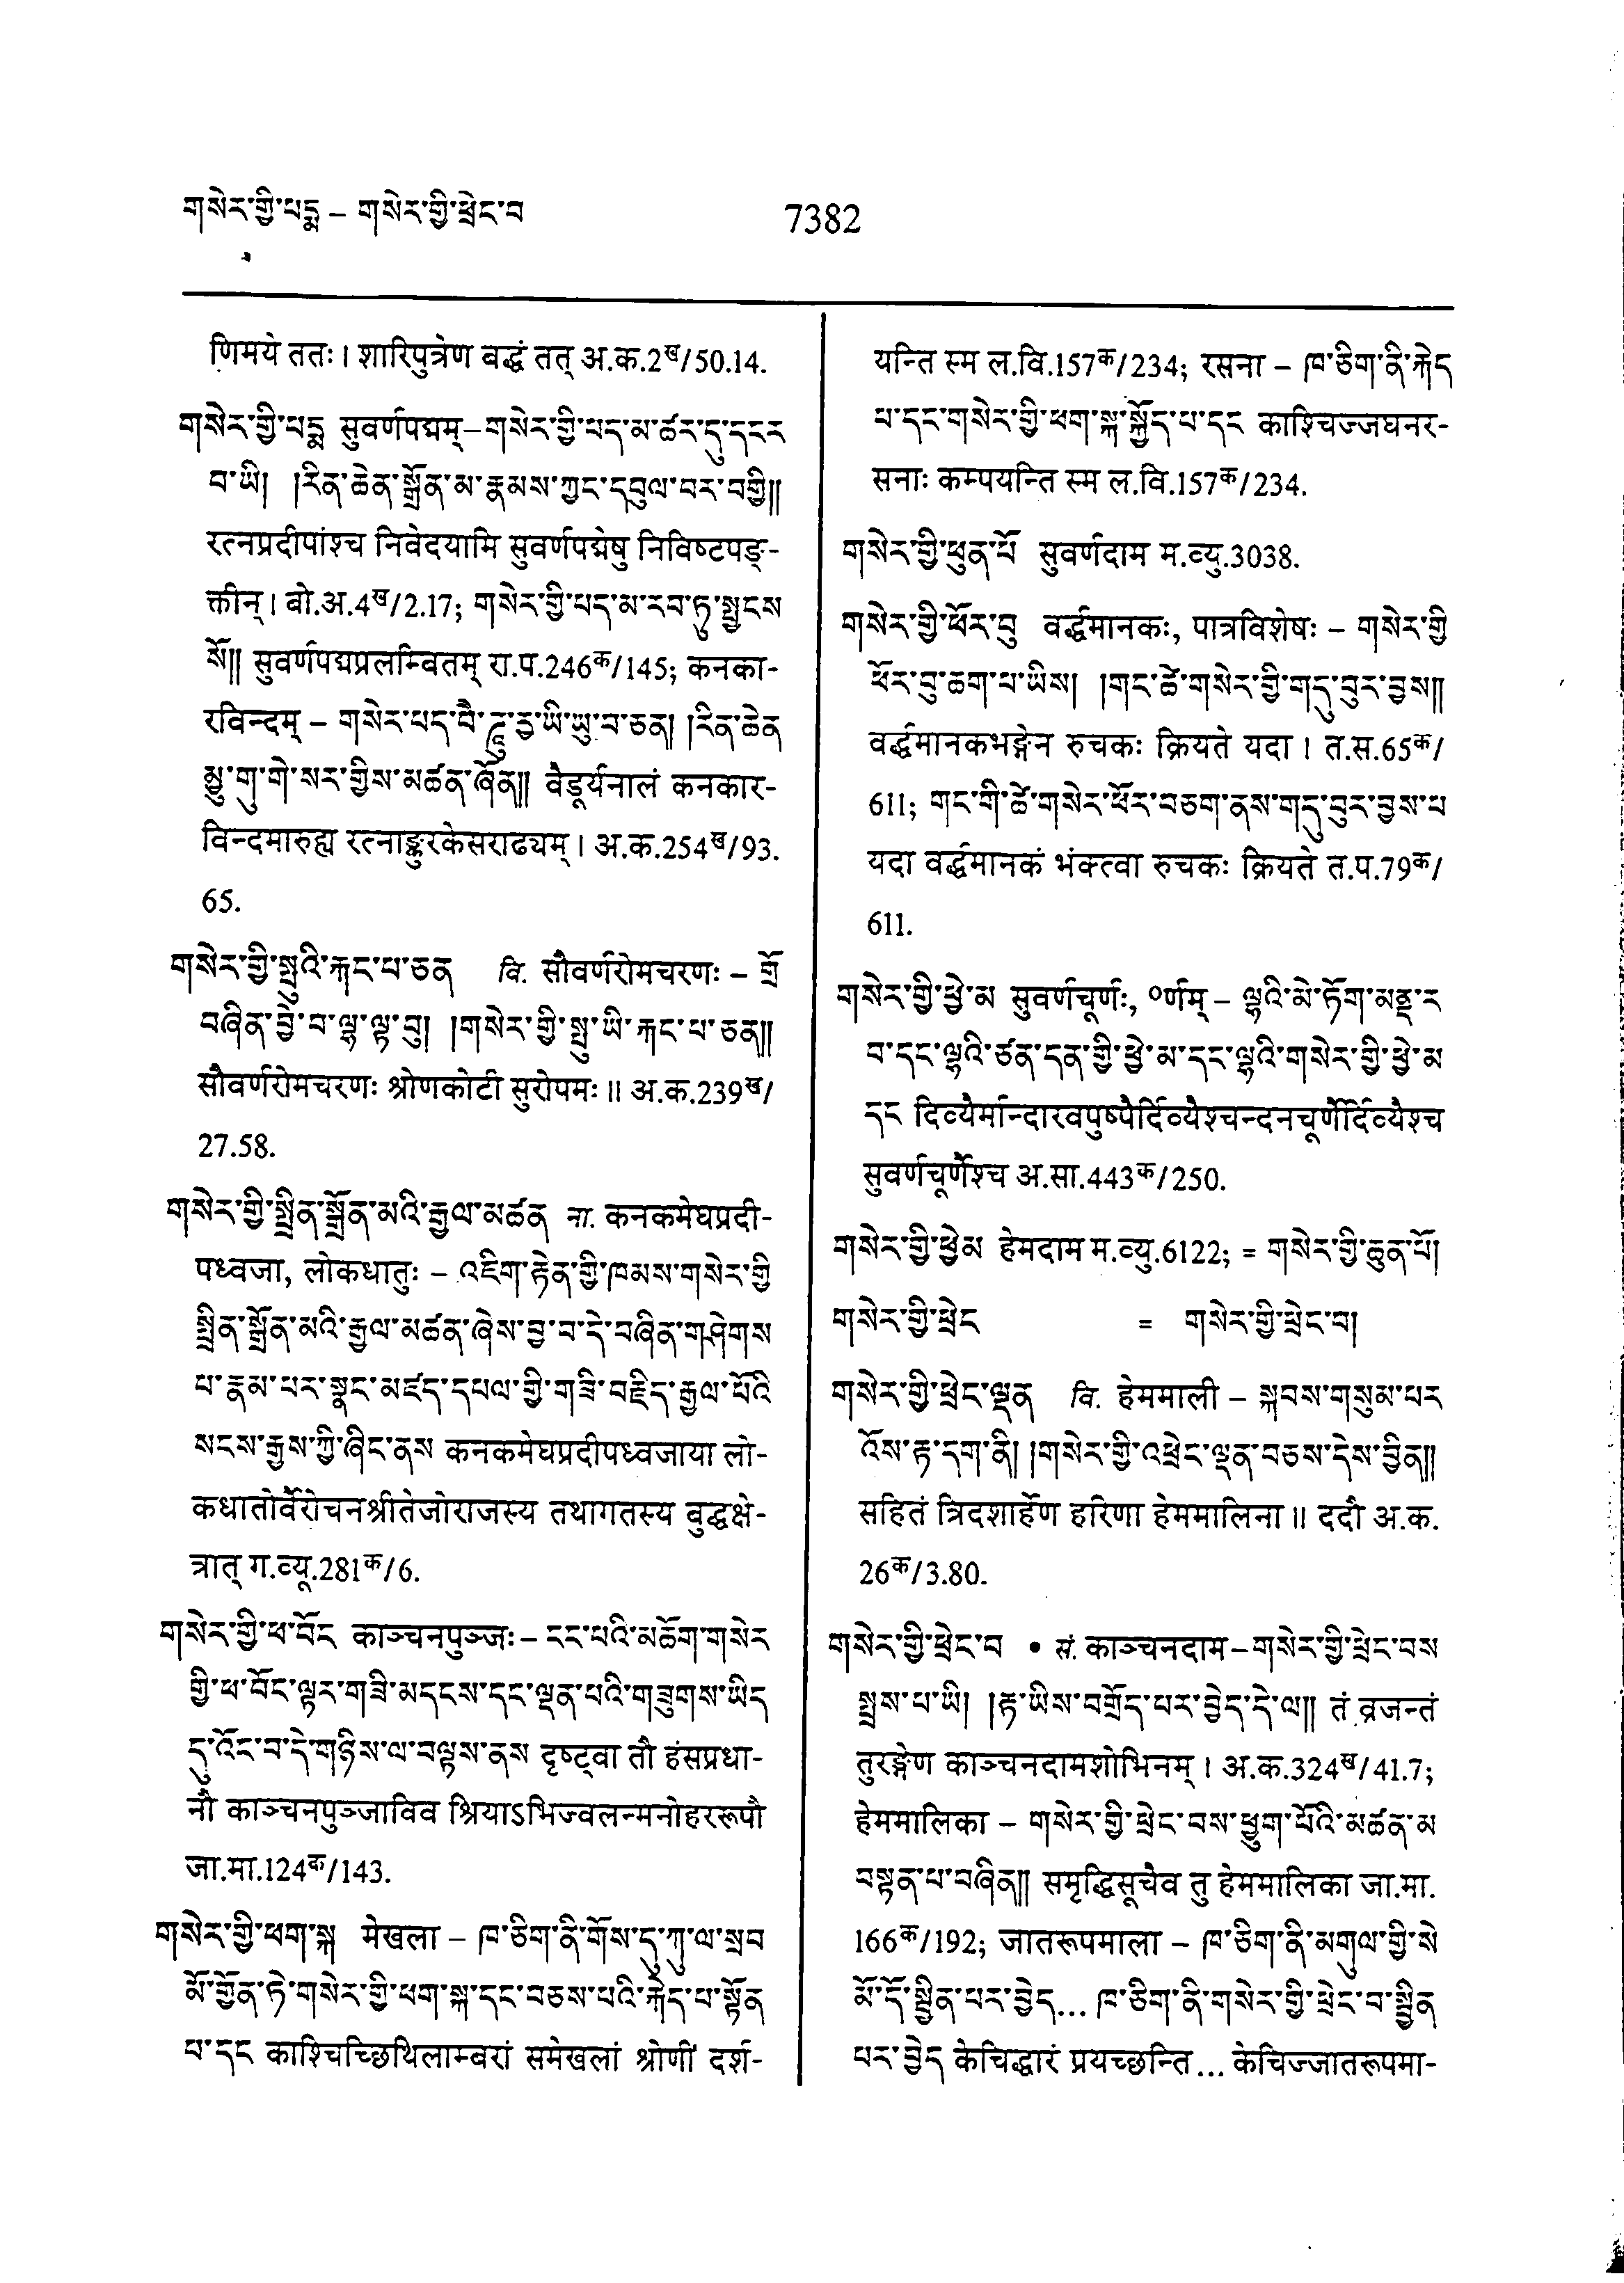 གསེར་གྱི་པདྨ – གསེར་གྱི་ཕྲེང་བ
7382
णिमये ततः। शारिपुत्रेण बद्धं तत् अ.क.2ख/50.14.
གསེར་གྱི་པདྨ सुवर्णपद्मम्–གསེར་གྱི་པད་མ་ཚར་དུ་དངར
བ་ཡི། །རིན་ཆེན་སྒྲོན་མ་རྣམས་ཀྱང་དབུལ་བར་བགྱི༎
रत्नप्रदीपांश्च निवेदयामि सुवर्णपद्मेषु निविष्टपङ्-
क्तीन्। बो.अ.4ख/2.17; གསེར་གྱི་པད་མ་རབ་ཏུ་སྦྱངས
སོ༎ सुवर्णपद्मप्रलम्बितम् रा.प.246क/145; कनका-
रविन्दम् – གསེར་པད་བཻ་ཌཱུ་རྱ་ཡི་ཡུ་བ་ཅན། །རིན་ཆེན
མྱུ་གུ་གེ་སར་གྱིས་མཚན་ཞོན༎ वैडूर्यनालं कनकार-
विन्दमारुह्य रत्नाङ्कुरकेसराढ्यम्। अ.क.254ख/93.
65.
གསེར་གྱི་སྤུའི་རྐང་པ་ཅན वि. सौवर्णरोमचरणः – གྲོ
བཞིན་བྱེ་བ་ལྷ་ལྟ་བུ། །གསེར་གྱི་སྤུ་ཡི་རྐང་པ་ཅན༎
सौवर्णरोमचरणः श्रोणकोटी सुरोपमः॥ अ.क.239ख/
27.58.
གསེར་གྱི་སྤྲིན་སྒྲོན་མའི་རྒྱལ་མཚན ना. कनकमेघप्रदी-
पध्वजा, लोकधातुः – འཇིག་རྟེན་གྱི་ཁམས་གསེར་གྱི
སྤྲིན་སྒྲོན་མའི་རྒྱལ་མཚན་ཞེས་བྱ་བ་དེ་བཞིན་གཤེགས
པ་རྣམ་པར་སྣང་མཛད་དཔལ་གྱི་གཟི་བརྗིད་རྒྱལ་པོའི
སངས་རྒྱས་ཀྱི་ཞིང་ནས कनकमेघप्रदीपध्वजाया लो-
कधातोर्वैरोचनश्रीतेजोराजस्य तथागतस्य बुद्धक्षे-
त्रात् ग.व्यू.281क/6.
གསེར་གྱི་ཕ་བོང काञ्चनपुञ्जः– ངང་པའི་མཆོག་གསེར
གྱི་ཕ་བོང་ལྟར་གཟི་མདངས་དང་ལྡན་པའི་གཟུགས་ཡིད
དུ་འོང་བ་དེ་གཉིས་ལ་བལྟས་ནས दृष्ट्वा तौ हंसप्रधा-
नौ काञ्चनपुञ्जाविव श्रियाऽभिज्वलन्मनोहररूपौ
जा.मा.124क/143.
གསེར་གྱི་ཕག་སྐ मेखला – ཁ་ཅིག་ནི་གོས་དུ་ཀུ་ལ་སྲབ
མོ་གྱོན་ཏེ་གསེར་གྱི་ཕག་སྐ་དང་བཅས་པའི་རྐེད་པ་སྟོན
པ་དང काश्चिच्छिथिलाम्बरां समेखलां श्रोणीं दर्श-
यन्ति स्म ल.वि.157क/234; रसना – ཁ་ཅིག་ནི་རྐེད
པ་དང་གསེར་གྱི་ཕག་སྐ་སྐྱོད་པ་དང काश्चिज्जघनर-
सनाः कम्पयन्ति स्म ल.वि.157क/234.
གསེར་གྱི་ཕུན་པོ सुवर्णदाम म.व्यु.3038.
གསེར་གྱི་ཕོར་བུ वर्द्धमानकः, पात्रविशेषः – གསེར་གྱི
ཕོར་བུ་ཆག་པ་ཡིས། །གང་ཚེ་གསེར་གྱི་གདུ་བུར་བྱས༎
वर्द्धमानकभङ्गेन रुचकः क्रियते यदा। त.स.65क/
611; གང་གི་ཚེ་གསེར་ཕོར་བཅག་ནས་གདུ་བུར་བྱས་པ
यदा वर्द्धमानकं भंक्त्वा रुचकः क्रियते त.प.79क/
611.
གསེར་གྱི་ཕྱེ་མ सुवर्णचूर्णः, ०र्णम् – ལྷའི་མེ་ཏོག་མནྡ་ར
བ་དང་ལྷའི་ཙན་དན་གྱི་ཕྱེ་མ་དང་ལྷའི་གསེར་གྱི་ཕྱེ་མ
དང दिव्यैर्मान्दारवपुष्पैर्दिव्यैश्चन्दनचूर्णैर्दिव्यैश्च
सुवर्णचूर्णैश्च अ.सा.443क/250.
གསེར་གྱི་ཕྱེམ हेमदाम म.व्यु.6122; = གསེར་གྱི་ཆུན་པོ།
གསེར་གྱི་ཕྲེང = གསེར་གྱི་ཕྲེང་བ།
གསེར་གྱི་ཕྲེང་ལྡན वि. हेममाली – སྐབས་གསུམ་པར
འོས་རྟ་དག་ནི། །གསེར་གྱི་འཕྲེང་ལྡན་བཅས་དེས་བྱིན༎
सहितं त्रिदशार्हेण हरिणा हेममालिना॥ ददौ अ.क.
26क/3.80.
གསེར་གྱི་ཕྲེང་བ • सं. काञ्चनदाम–གསེར་གྱི་ཕྲེང་བས
སྤྲས་པ་ཡི། །རྟ་ཡིས་བགྲོད་པར་བྱེད་དེ་ལ༎ तं व्रजन्तं
तुरङ्गेण काञ्चनदामशोभिनम्। अ.क.324ख/41.7;
हेममालिका – གསེར་གྱི་ཕྲེང་བས་ཕྱུག་པོའི་མཚན་མ
བསྟན་པ་བཞིན༎ समृद्धिसूचैव तु हेममालिका जा.मा.
166क/192; जातरूपमाला – ཁ་ཅིག་ནི་མགུལ་གྱི་སེ
མོ་དོ་སྦྱིན་པར་བྱེད... ཁ་ཅིག་ནི་གསེར་གྱི་ཕྲེང་བ་སྦྱིན
པར་བྱེད केचिद्धारं प्रयच्छन्ति... केचिज्जातरूपमा-